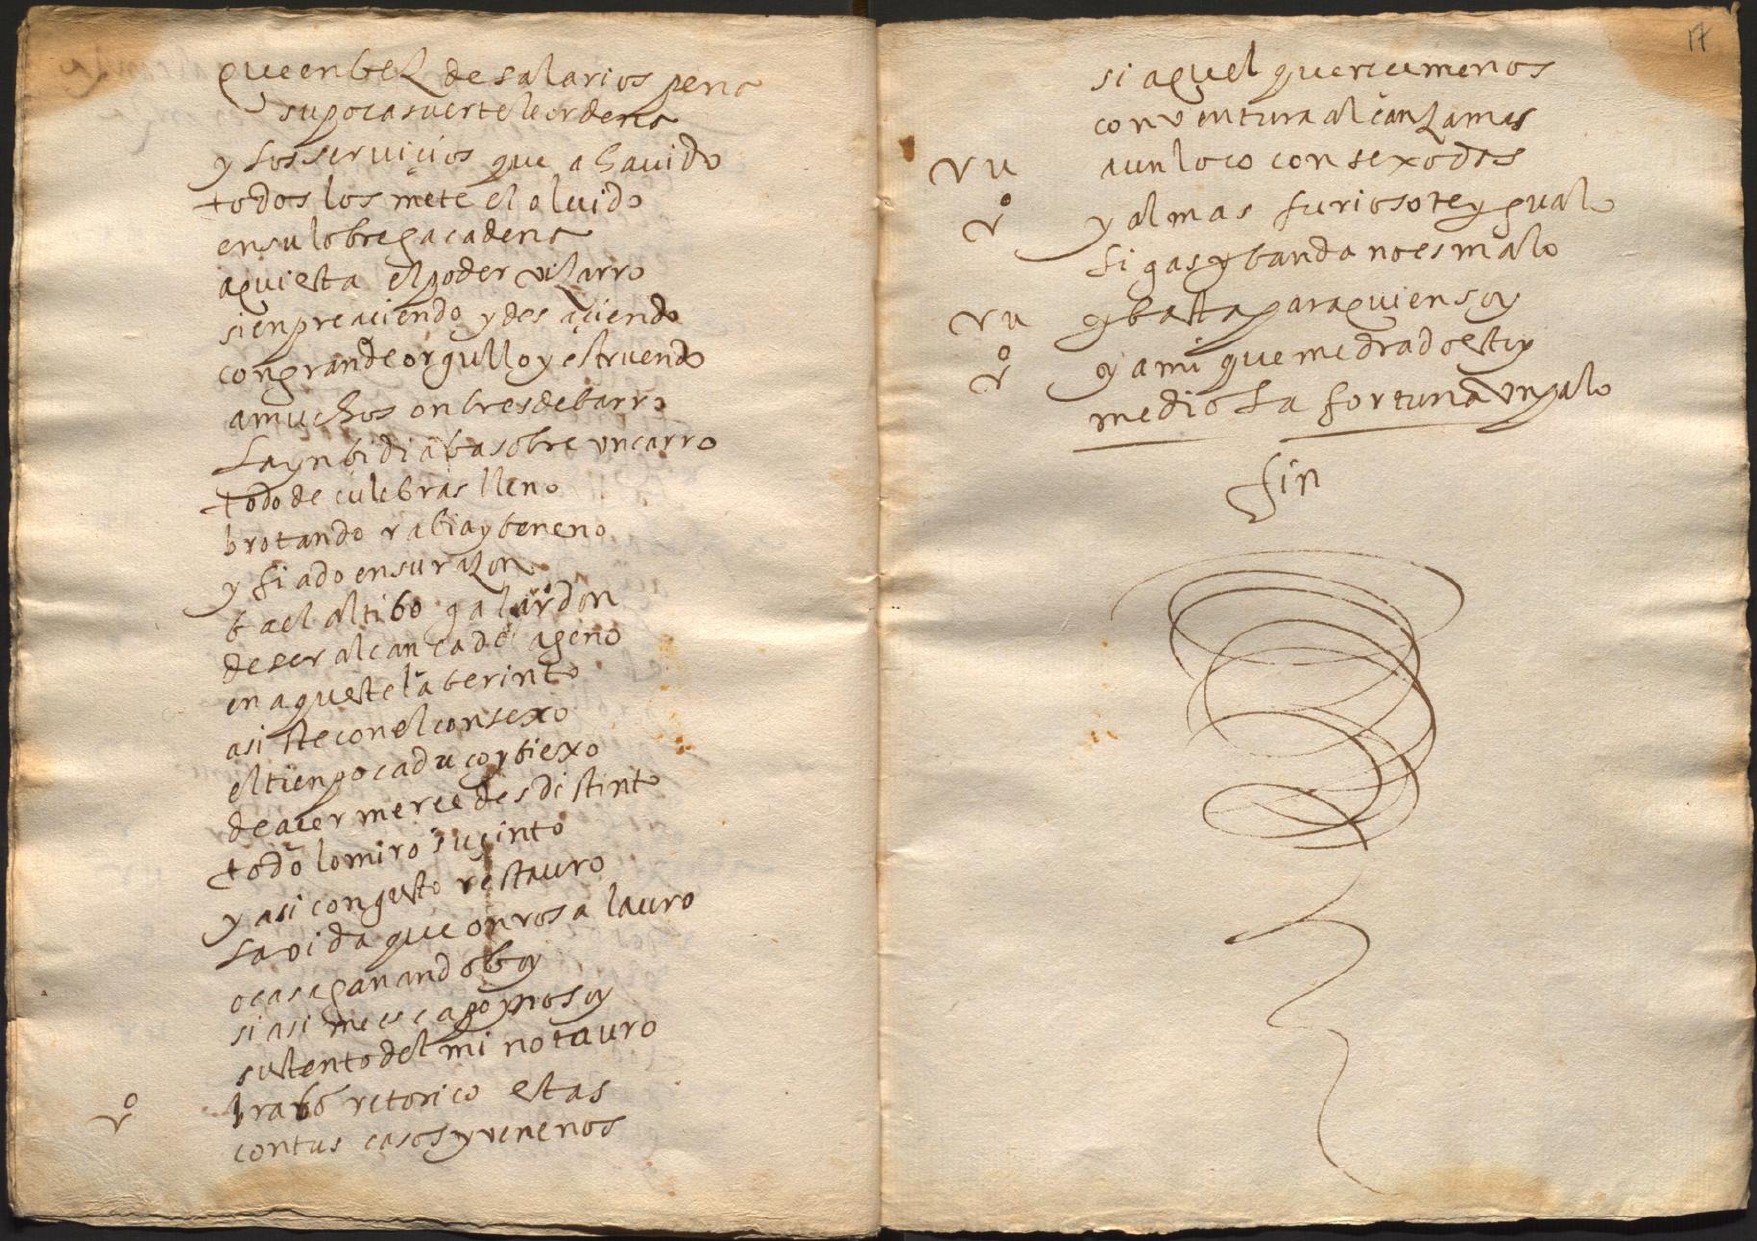 que en bez de salarios pena
su poca suerte le ordena
y los seruicios que a hauido
todos los mete el oluido
en su lobrega cadena
aqui esta el poder vizarro
sienpre aciendo y desaciendo
con grande orgullo y estruendo
a muchos onbres de barro
la ynbidia ba sobre vn carro
todo de culebras lleno
brotando rabia y beneno
y fiado en su razon
ba el altibo galardon
de ser alcancado ageno
en aqueste laberinto
asiste con el consexo
el tienpo caduco y biexo
de acer mercedes distinto
todo lo miro sucinto
y asi con gusto restauro
la vida que onrosa lauro
o casa ganando boy
si asi me escapo y no soy
sustento del minotauro
rº brabo retorico estas
con tus casos y venenos
17
si aquel que rceu menos
con ventura alcanza mas
ru a un loco consexo das
rº y al mas furioso te ygualo
figas y banda no es malo
ru y basta para quien soy
rº y a mi que medrado estoy
me dio la fortuna vn palo
fin